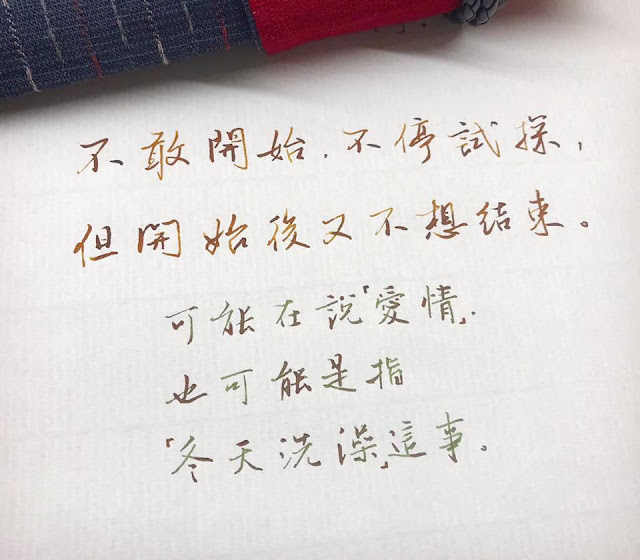 不敢開始,不停試探,
但開始後又不想結束。
可能在說「愛情」,
也可能是指
「冬天洗澡」這事。